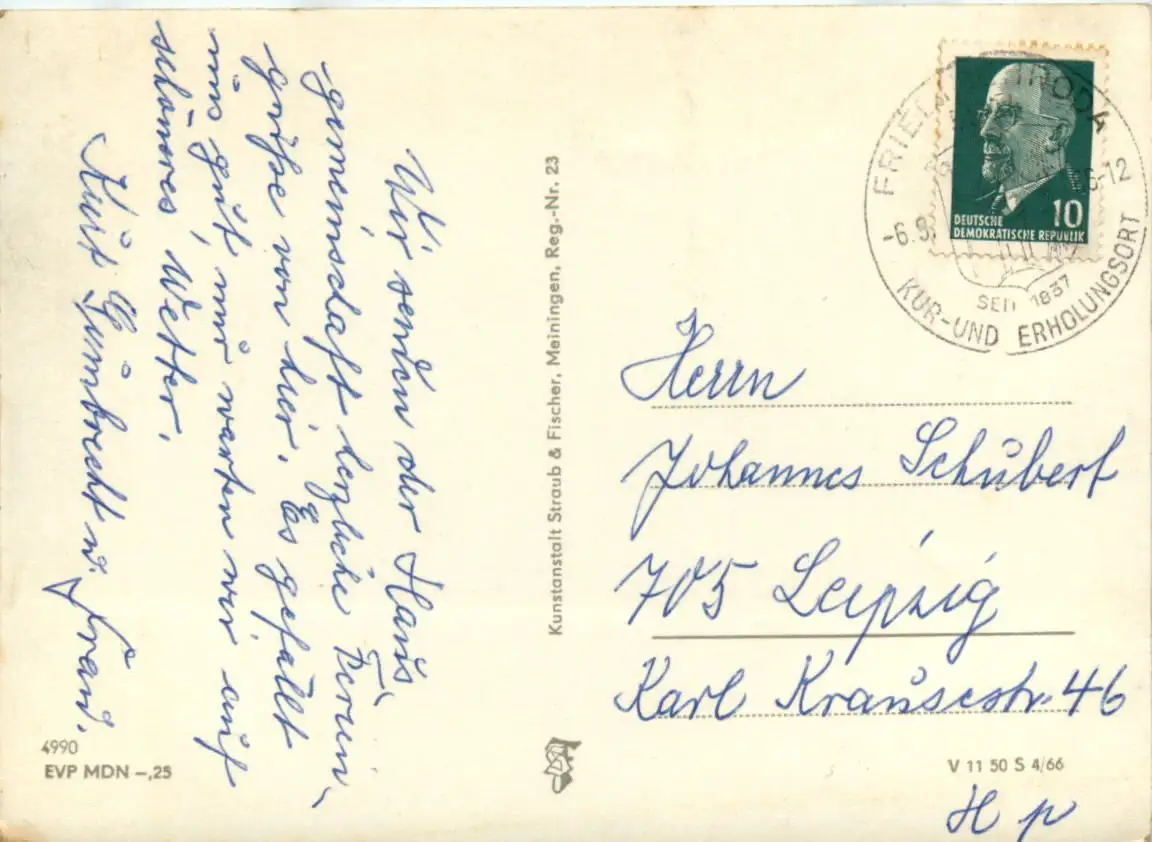 Wir senden der Haus-
gemeinschaft herzliche Ferien-
grüße von hier. Es gefällt
uns gut, nur warten wir auf
schönes Wetter.
Kurt Gumbrecht u. Frau.
4990
EVP MDN –,25
Kunstanstalt Straub & Fischer, Meiningen, Reg.-Nr. 23
DEUTSCHE
DEMOKRATISCHE REPUBLIK
10
-6.9.
-12
SEIT 1837
KUR-UND ERHOLUNGSORT
Herrn
Johannes Schubert
705 Leipzig
Karl Krausestr. 46
V 11 50 S 4/66
H p